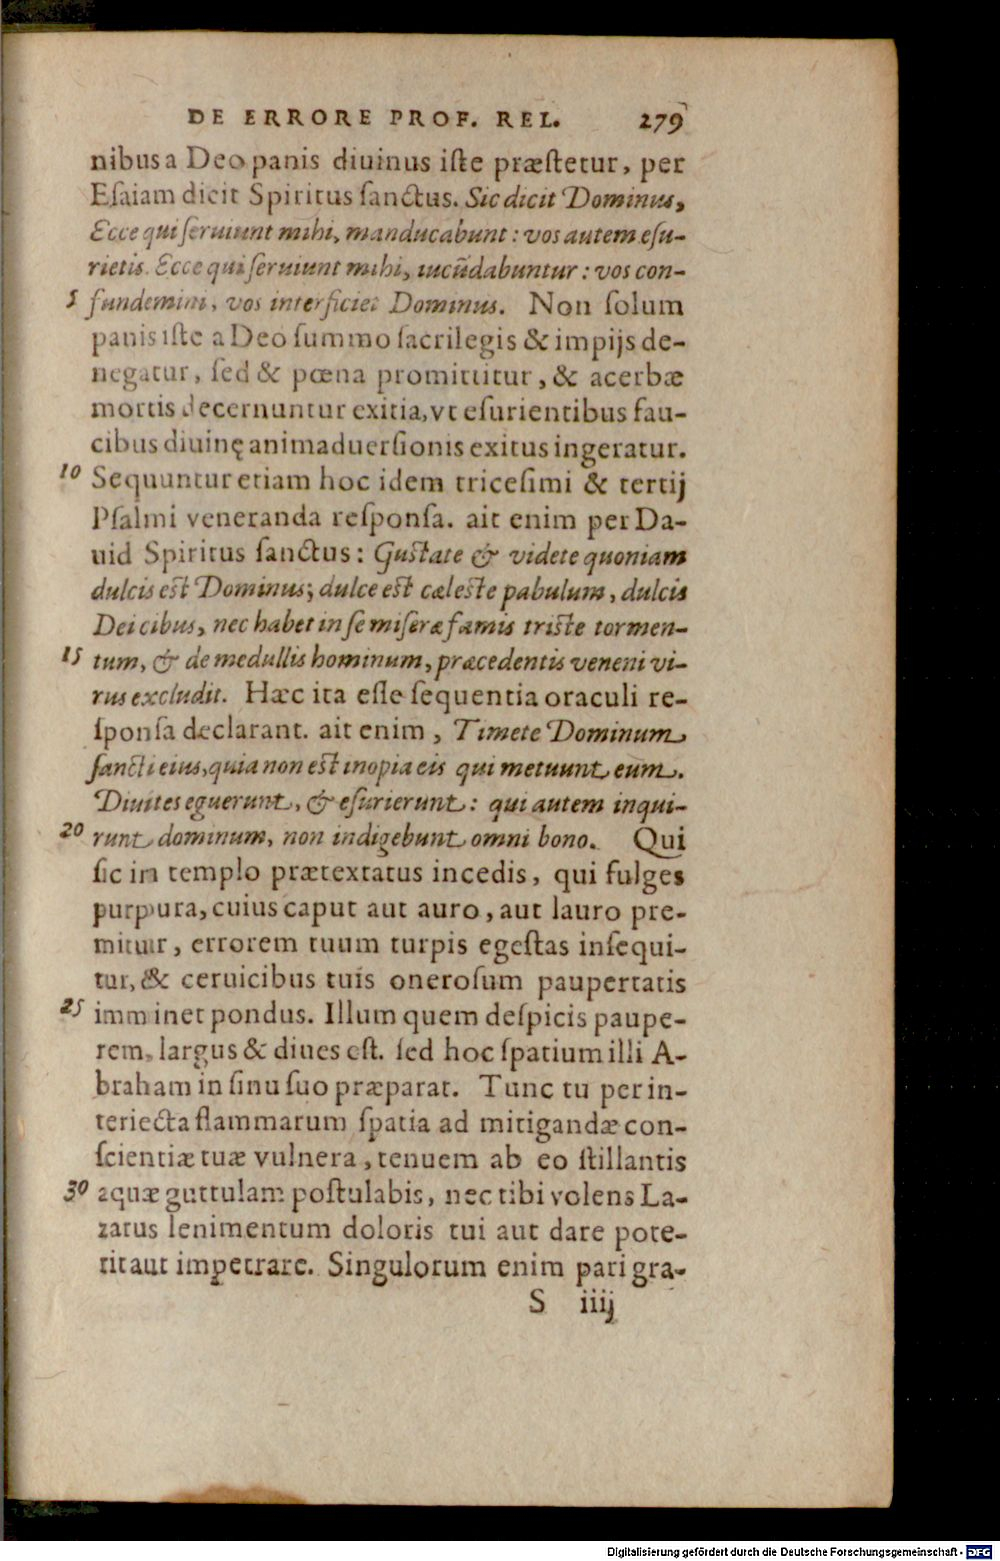 DE ERRORE PROF. REL. 279
nibus a Deo panis diuinus iſte præſtetur, per
Eſaiam dicit Spiritus ſanctus. Sic dicit Dominus,
Ecce qui ſeruiunt mihi, manducabunt: vos autem eſu-
rietis. Ecce qui ſeruiunt mihi, iucũdabuntur: vos con-
5 fundemini, vos interficiet Dominus. Non ſolum
panis iſte a Deo ſummo ſacrilegis & impijs de-
negatur, ſed & pœna promittitur, & acerbæ
mortis decernuntur exitia, vt eſurientibus fau-
cibus diuinę animaduerſionis exitus ingeratur.
10 Sequuntur etiam hoc idem triceſimi & tertij
Pſalmi veneranda reſponſa. ait enim per Da-
uid Spiritus ſanctus: Guſtate & videte quoniam
dulcis eſt Dominus; dulce eſt cæleſte pabulum, dulcis
Dei cibus, nec habet in ſe miſeræ famis triſte tormen-
15 tum, & de medullis hominum, præcedentis veneni vi-
rus excludit. Hæc ita eſſe ſequentia oraculi re-
ſponſa declarant. ait enim, Timete Dominum
ſancti eius, quia non eſt inopia eis qui metuunt eum.
Diuites eguerunt, & eſurierunt: qui autem inqui-
20 runt dominum, non indigebunt omni bono. Qui
ſic in templo prætextatus incedis, qui fulges
purpura, cuius caput aut auro, aut lauro pre-
mitur, errorem tuum turpis egeſtas inſequi-
tur, & ceruicibus tuis oneroſum paupertatis
25 imminet pondus. Illum quem deſpicis paupe-
rem, largus & diues eſt. ſed hoc ſpatium illi A-
braham in ſinu ſuo præparat. Tunc tu per in-
teriecta flammarum ſpatia ad mitigandæ con-
ſcientiæ tuæ vulnera, tenuem ab eo ſtillantis
30 aquæ guttulam poſtulabis, nec tibi volens La-
zarus lenimentum doloris tui aut dare pote-
rit aut impetrare. Singulorum enim pari gra-
S iiij
Digitalisierung gefördert durch die Deutsche Forschungsgemeinschaft - DFG